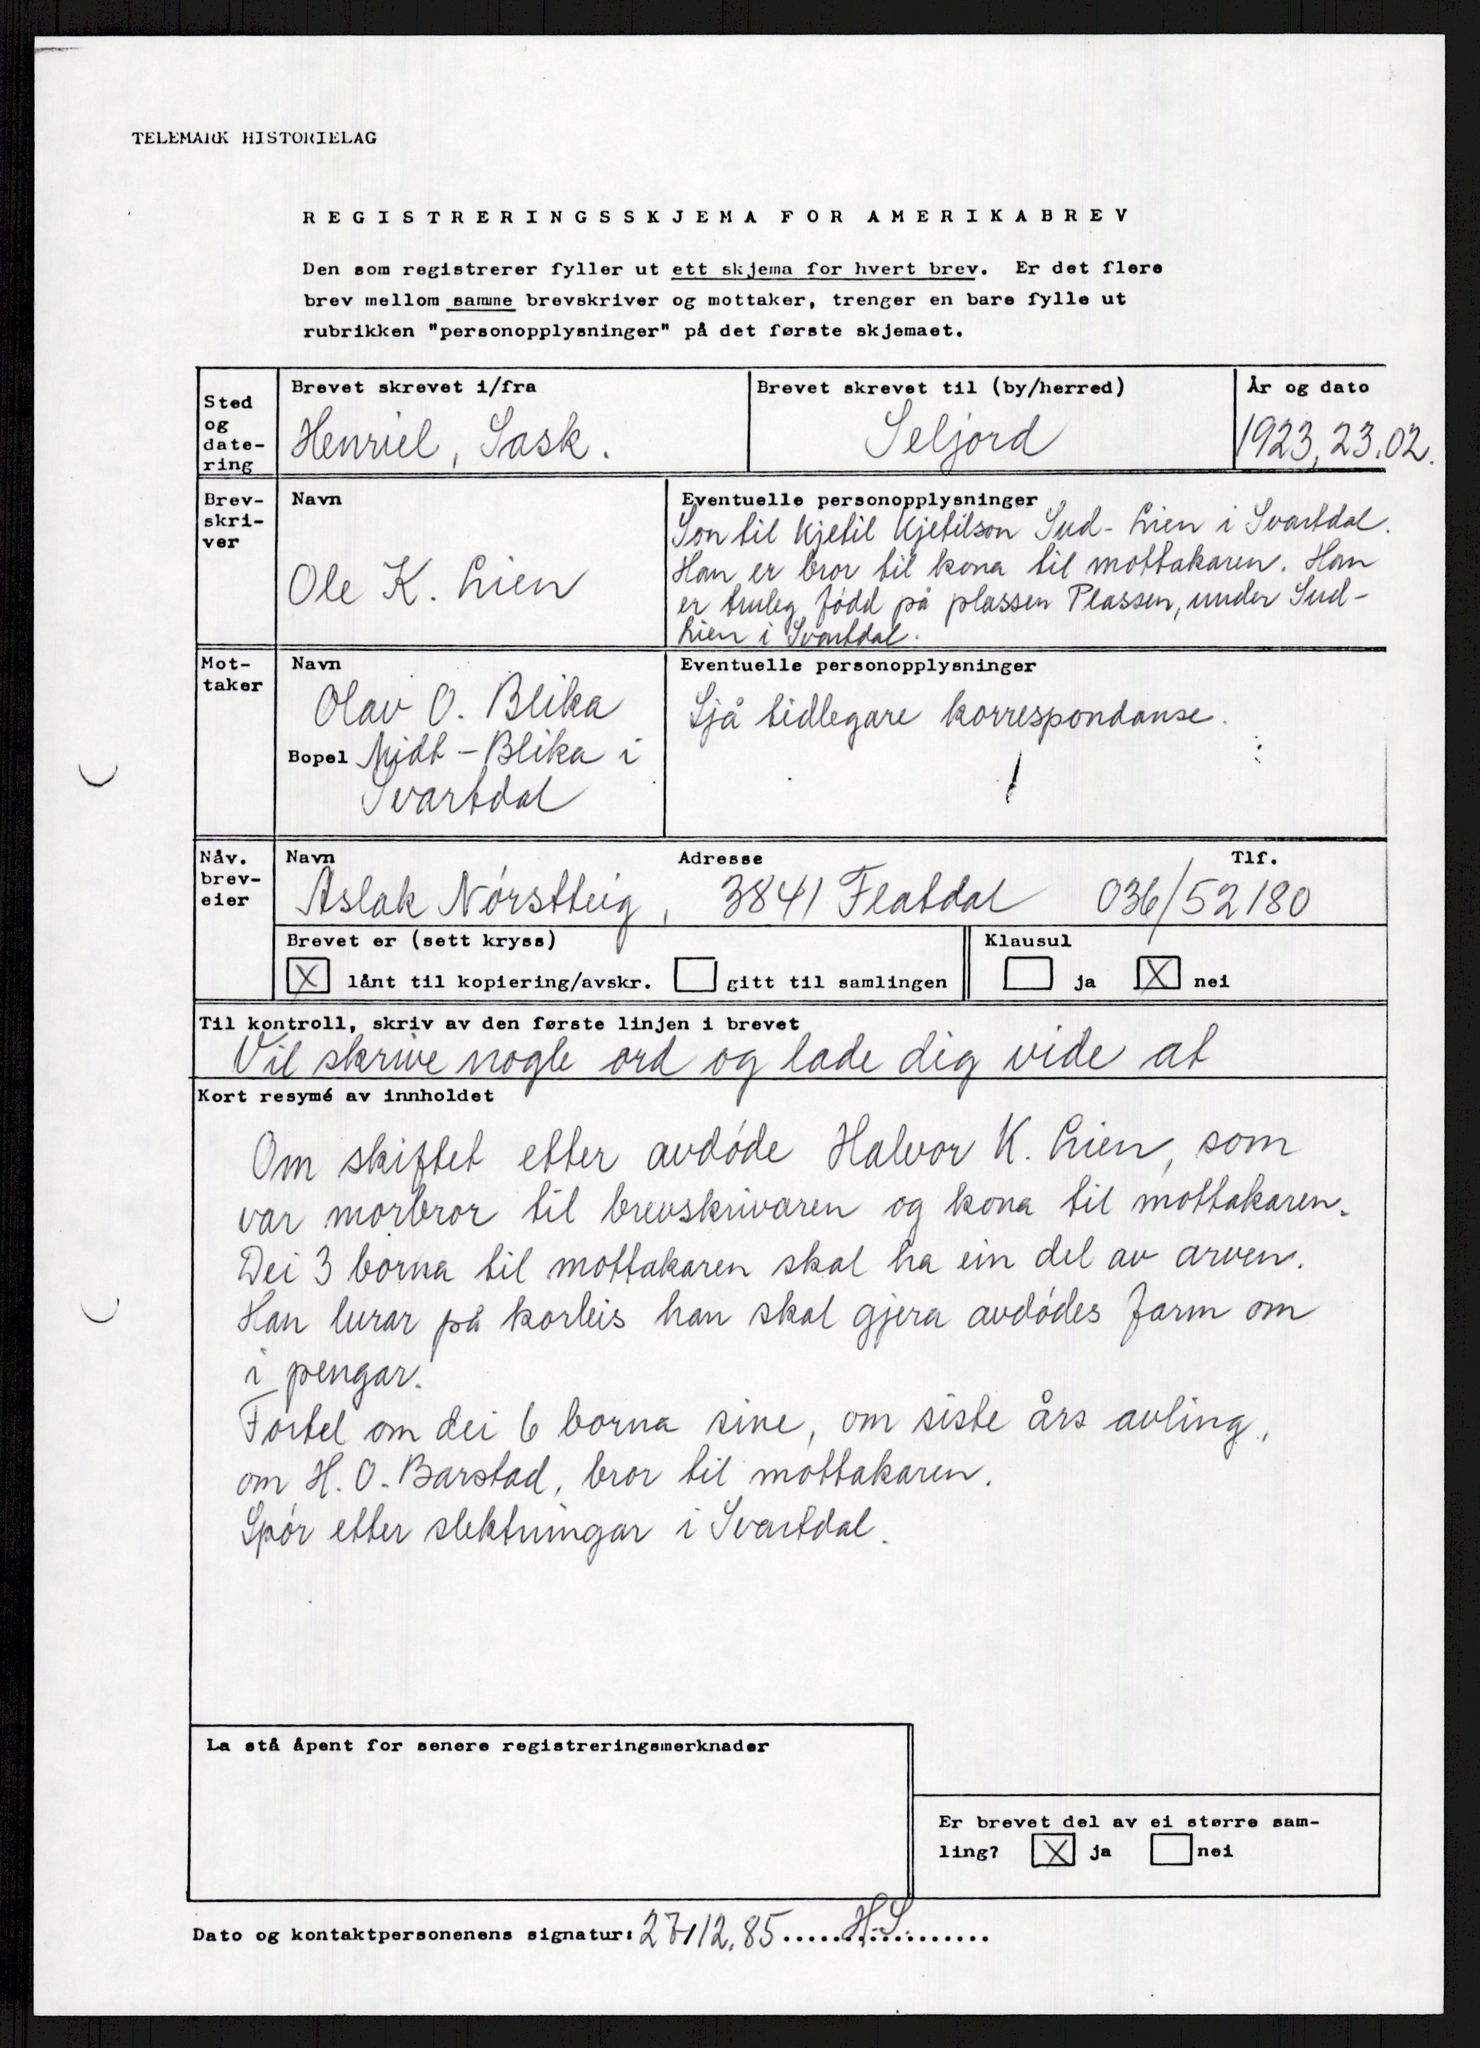 TELEMARK HISTORIELAG
REGISTRERINGSSKJEMA FOR AMERIKABREV
Den som registrerer fyller ut ett skjema for hvert brev. Er det flere
brev mellom samme brevskriver og mottaker, trenger en bare fylle ut
rubrikken "personopplysninger" på det første skjemaet.
Sted og date-ring
Brevet skrevet i/fra
Henriel, Sask.
Brevet skrevet til (by/herred)
Seljord
År og dato
1923, 23.02.
Brev-skri-ver
Navn
Ole K. Lien
Eventuelle personopplysninger
Son til Kjetil Kjetilson Sud-Lien i Svartdal.
Han er bror til kona til mottakaren. Han
er truleg fødd på plassen Plassen, under Sud-
Lien i Svartdal.
Mot-taker
Navn
Olav O. Blika
Bopel Midt-Blika i
Svartdal
Eventuelle personopplysninger
Sjå tidlegare korrespondanse.
Nåv. brev-eier
Navn
Adresse
Tlf.
Aslak Nørstteig, 3841 Flatdal 036/52180
Brevet er (sett kryss)
X lånt til kopiering/avskr. gitt til samlingen
Klausul
ja X nei
Til kontroll, skriv av den første linjen i brevet
Vil skrive nogle ord og lade dig vide at
Kort resymé av innholdet
Om skiftet etter avdøde Halvor K. Lien, som
var morbror til brevskrivaren og kona til mottakaren.
Dei 3 borna til mottakaren skal ha ein del av arven.
Han lurar på korleis han skal gjera avdødes farm om
i pengar.
Fortel om dei 6 borna sine, om siste års avling,
om H. O. Barstad, bror til mottakaren.
Spør etter slektningar i Svartdal.
La stå åpent for senere registreringsmerknader
Er brevet del av ei større sam-
ling? X ja nei
Dato og kontaktpersonenens signatur: 27/12.85 H.S.